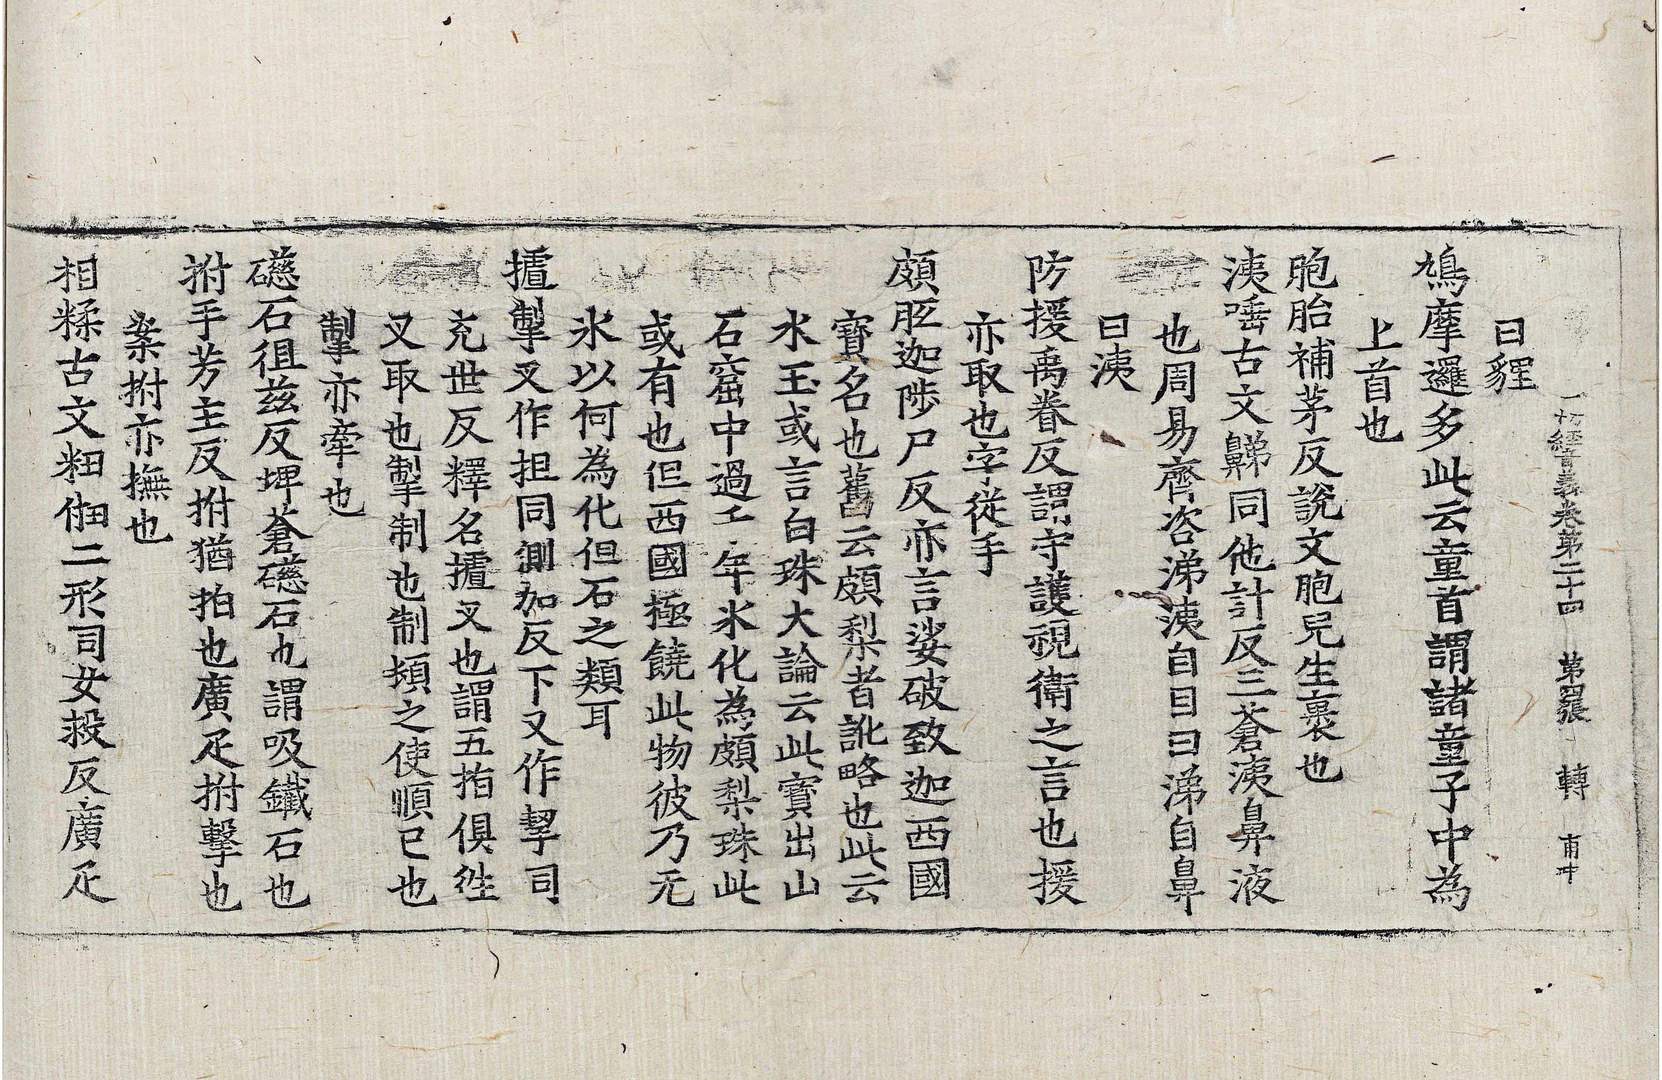 一切經音義卷第二十四　第四張　轉　甫中
曰貍
鳩摩邏多此云童首謂諸童子中為
上首也
胞胎補茅反說文胞兒生裹也
洟唾古文鵜同他計反三蒼洟鼻液
也周易齊咨涕洟自目曰涕自鼻
曰洟
防援禹眷反謂守護視衛之言也援
亦取也字從手
頗胝迦陟尸反亦言娑破致迦西國
寶名也舊云頗梨者訛略也此云
水玉或言白珠大論云此寶出山
石窟中過千年氷化為頗梨珠此
或有也但西國極饒此物彼乃无
氷以何為化但石之類耳
摣掣又作担同測加反下又作挈同
充世反釋名摣叉也謂五指俱往
叉取也掣制也制頓之使順已也
掣亦牽也
礠石徂兹反埤蒼礠石也謂吸鐵石也
拊手芳主反拊猶拍也廣疋拊擊也
案拊亦撫也
相糅古文粈𠆵二形同女救反廣疋